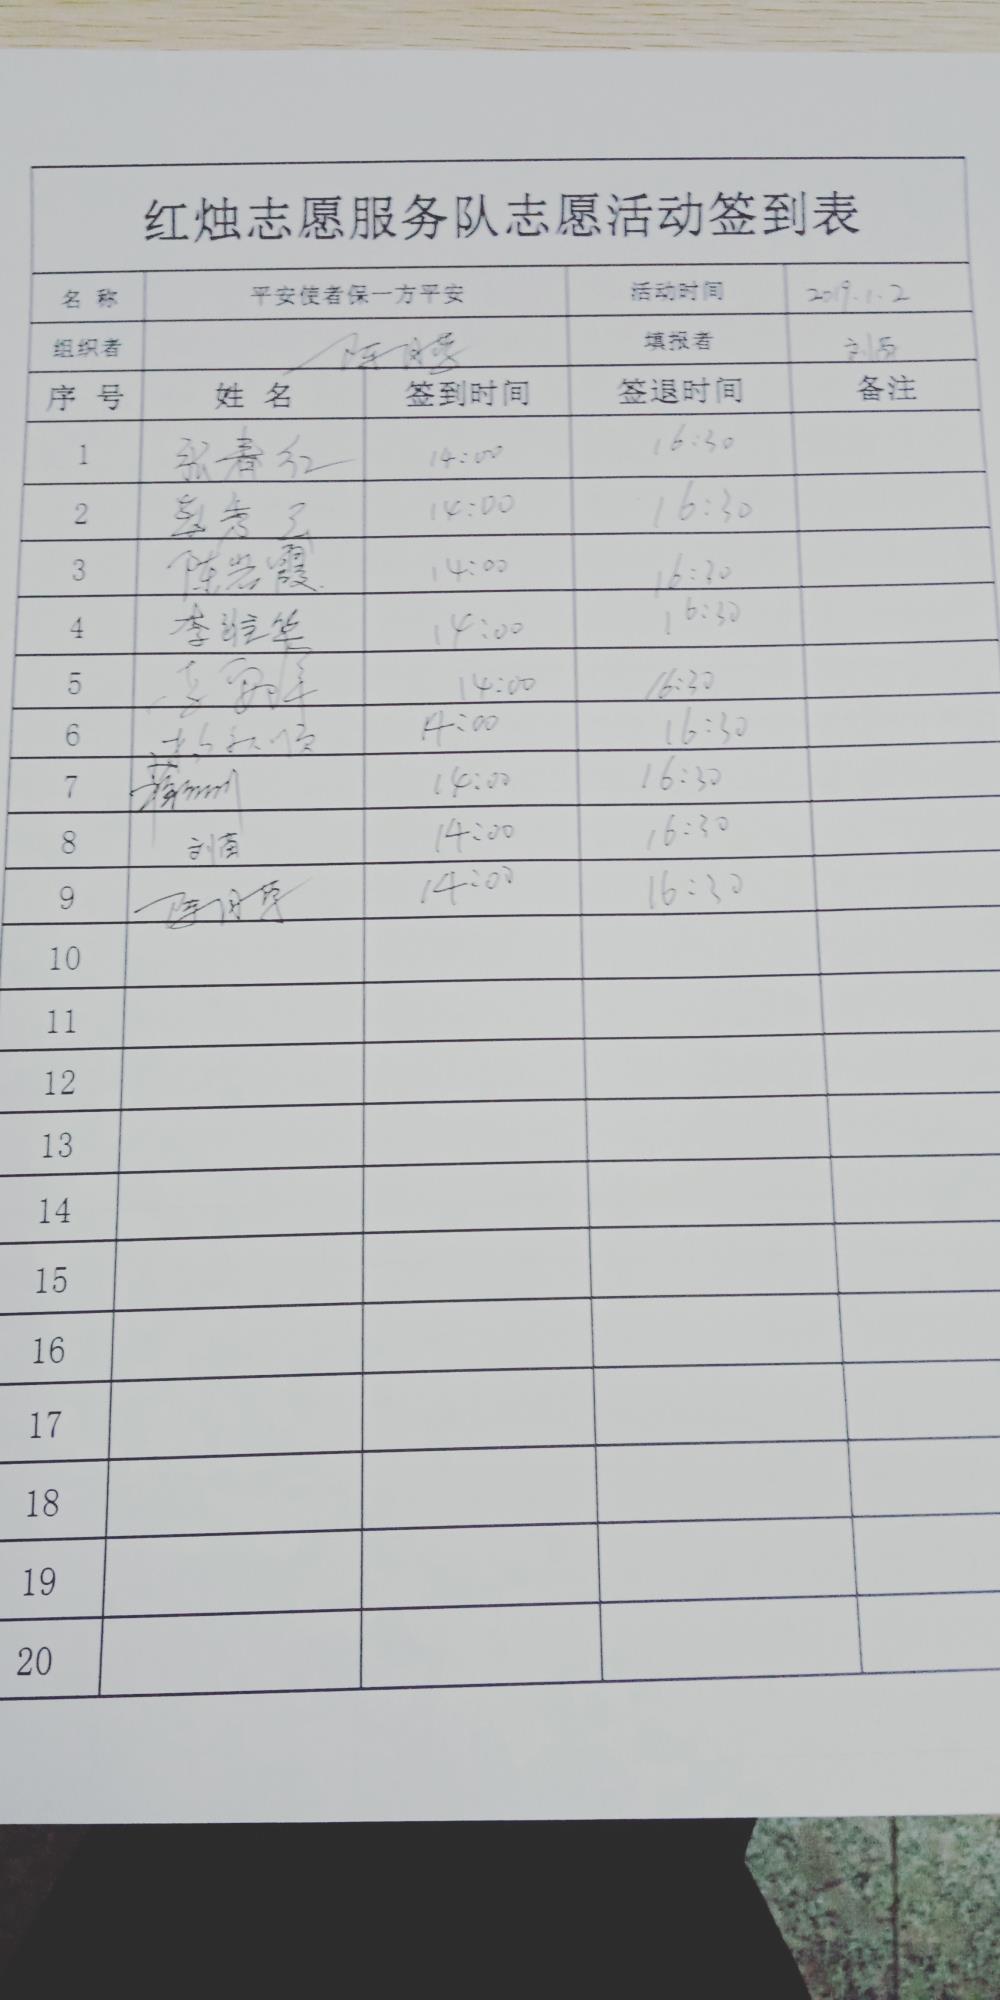 红烛志愿服务队志愿活动签到表
名 称 平安使者保一方平安 活动时间 2019.1.2
组织者 填报者
序 号 姓 名 签到时间 签退时间 备注
1 张春红 14:00 16:30
2 14:00 16:30
3 陈岩霞 14:00 16:30
4 李维华 14:00 16:30
5 14:00 16:30
6 14:00 16:30
7 14:00 16:30
8 14:00 16:30
9 14:00 16:30
10
11
12
13
14
15
16
17
18
19
20